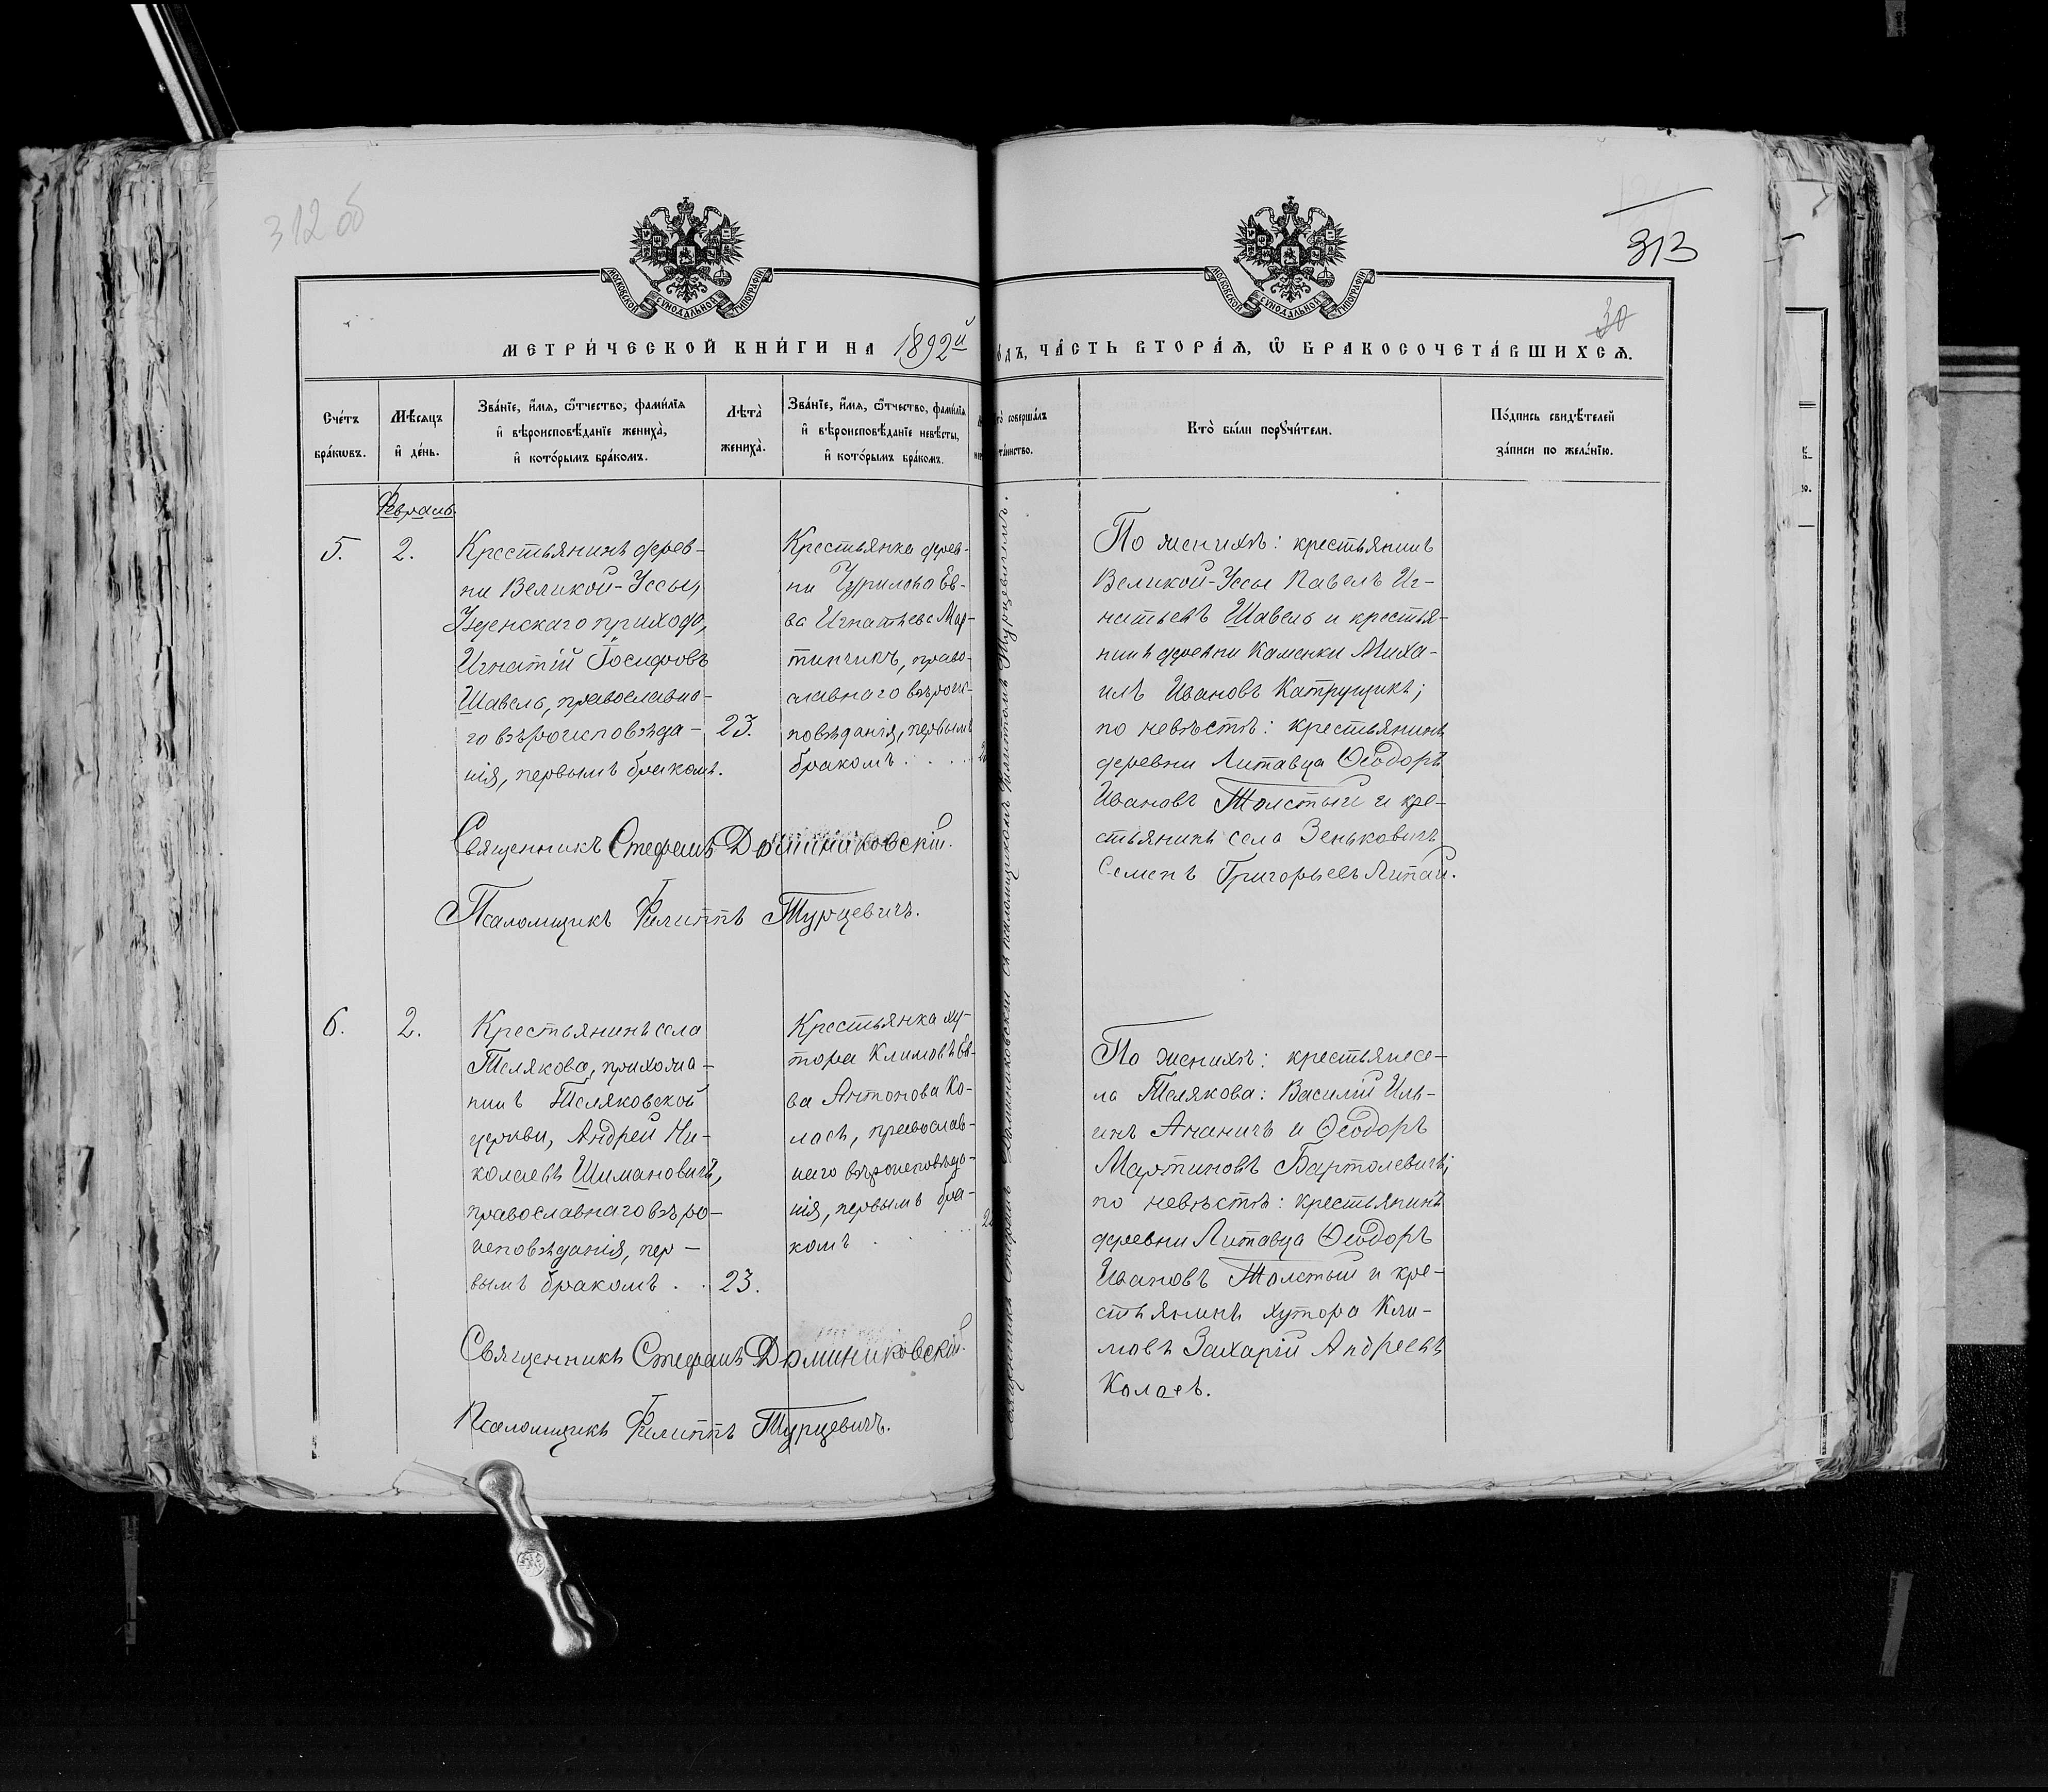 312 об
313
30
МОСКОВСКОЙ СѴНОДАЛЬНОЙ ТИПОГРАФІИ
МОСКОВСКОЙ СѴНОДАЛЬНОЙ ТИПОГРАФІИ
МЕТРИ́ЧЕСКОЙ КНИ́ГИ НА 1892й
ОДЪ, ЧА́СТЬ ВТОРА́Ѧ, Ѿ БРАКОСОЧЕТА́ВШИХСѦ.
Сче́тъ бра́кѡвъ.
Мѣ́сѧцъ и҆ де́нь.
Зва́нїе, и҆́мѧ, ѻ҆́тчество, фами́лїѧ
и҆ вѣроисповѣ́данїе жениха̀,
и҆ кото́рымъ бра́комъ.
Лѣта̀ жениха̀.
Зва́нїе, и҆́мѧ, ѻ҆́тчество, фами́лїѧ
и҆ вѣроисповѣ́данїе невѣ́сты,
и҆ кото́рымъ бра́комъ.
то̀ соверша́лъ
та́инство.
Кто̀ бы́ли порꙋчи́тели.
По́дпись свидѣ́телей
за́писи по жела́нїю.
Февраль.
5.
2.
Крестьянинъ дерев-
ни Великой-Уссы,
Узденскаго прихода,
Игнатій Іосифовъ
Шавель, православна-
го вѣроисповѣда-
нія, первымъ бракомъ.
23.
Крестьянка дерев-
ни Чурилова Ев-
ва Игнатьева Мар-
тинчикъ, право-
славнаго вѣроис-
повѣданія, первымъ
бракомъ . . . .
По женихѣ: крестьянинъ
Великой-Уссы Павелъ Иг-
натьевъ Шавель и крестья-
нинъ деревни Каменки Миха-
илъ Ивановъ Катрущикъ;
по невѣстѣ: крестьянинъ
деревни Литавца Ѳеодоръ
Ивановъ Толстый и кре-
стьянинъ села Зеньковичъ
Семенъ Григорьевъ Липай.
Священникъ Стефанъ Доминиковскій.
Псаломщикъ Филиппъ Турцевичъ.
Священникъ Стефанъ Доминиковскій съ псаломщикомъ Филиппомъ Турцевичемъ.
6.
2.
Крестьянинъ села
Телякова, прихожа-
нинъ Теляковской
церкви, Андрей Ни-
колаевъ Шимановичъ,
православнаго вѣро-
исповѣданія, пер-
вымъ бракомъ . .
23.
Крестьянка ху-
тора Климовъ Ев-
ва Антонова Ко-
лосъ, православ-
наго вѣроисповѣда-
нія, первымъ бра-
комъ . . . .
По женихѣ: крестьяне се-
ла Телякова: Василій Иль-
инъ Ананичъ и Ѳеодоръ
Мартиновъ Бартолевичъ;
по невѣстѣ: крестьянинъ
деревни Литавца Ѳеодоръ
Ивановъ Толстый и кре-
стьянинъ хутора Кли-
мовъ Захарій Андреевъ
Колосъ.
Священникъ Стефанъ Доминиковскій.
Псаломщикъ Филиппъ Турцевичъ.